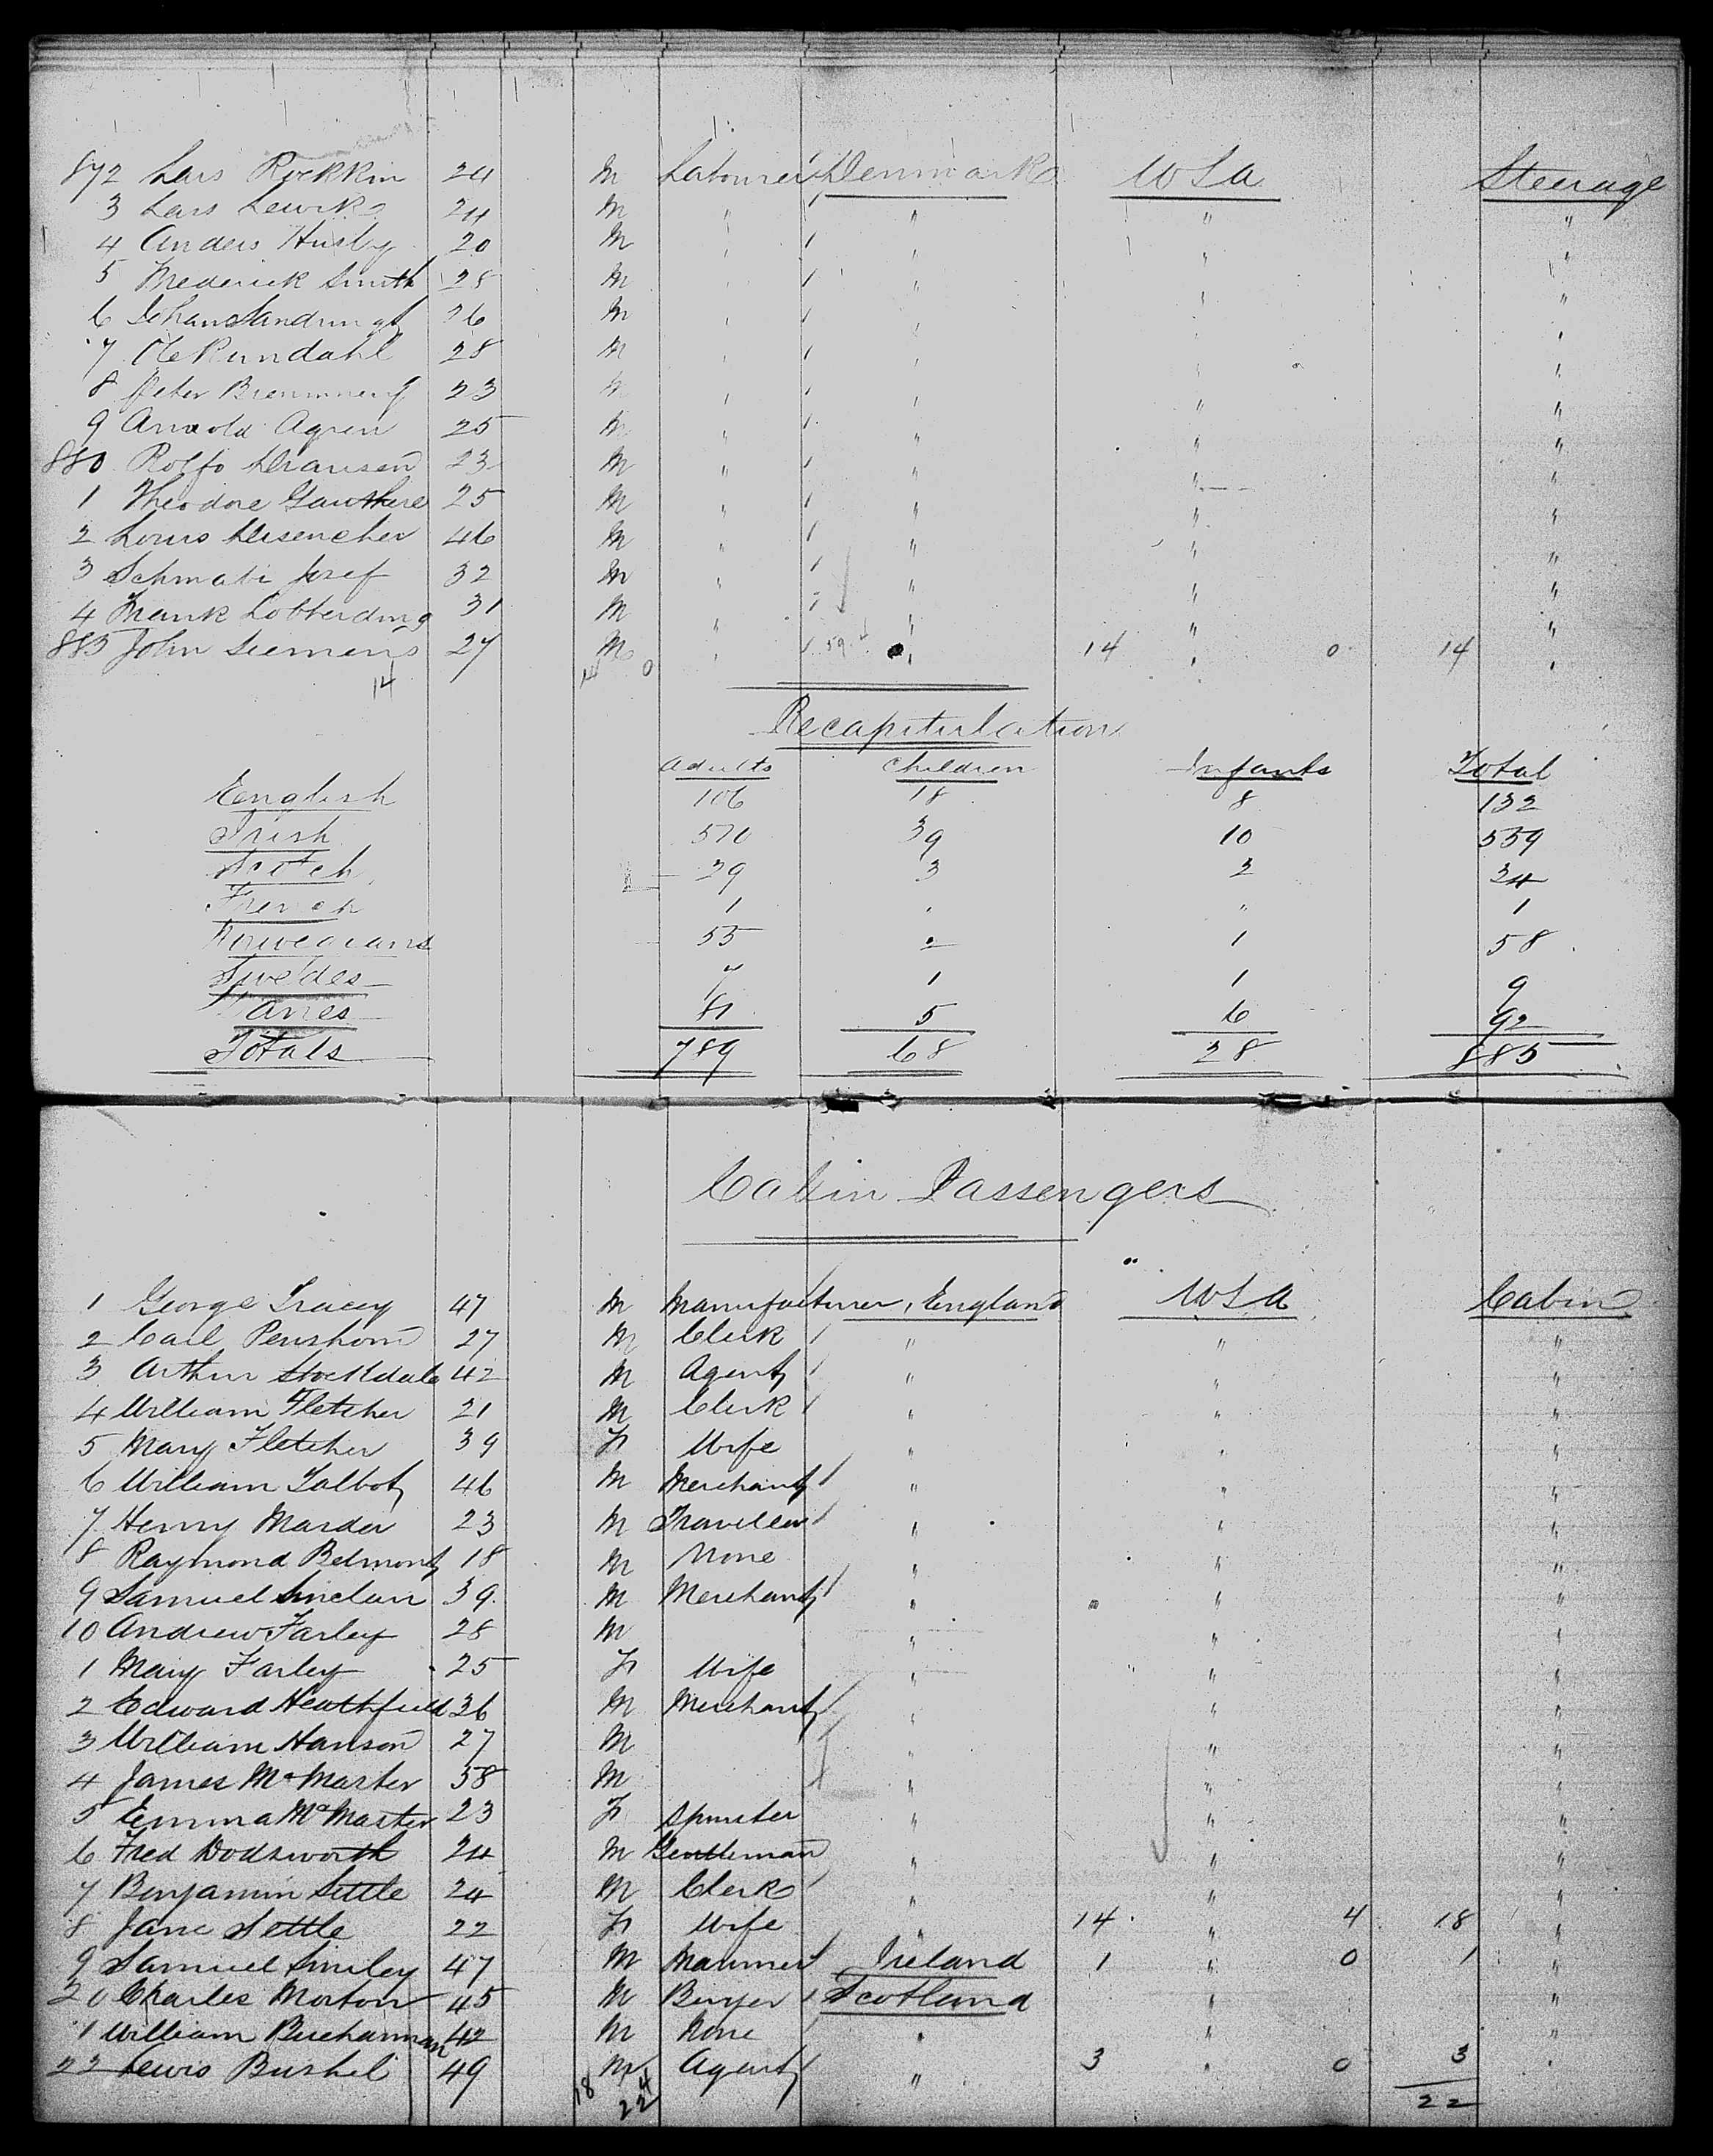 872 Lars Rockkin 24 M Labourer Denmark USA Steerage
3 Lars Lewik 24 M " " " "
4 Anders Husby 20 M " " " "
5 Frederick Smith 28 M " " " "
6 Johan 26 M " " " "
7 Ole Rundahl 28 M " " " "
8 Peter 23 M " " " "
9 Arnold Agren 25 M " " " "
880 Rolfo 23 M " " " "
1 Theodore 25 M " " " "
2 Louis 46 M " " " "
3 Schmati Josef 32 M " " " "
4 Frank Lotterding 31 M " " " "
885 John Siemens 27 M " 59 " 14 " 0 14 "
14 14 0
Recapitulation
Adults Children Infants Total
English 106 18 8 132
Irish 510 39 10 559
Scotch 29 3 2 34
French 1 " " 1
Norwegians 55 2 1 58
Swedes 7 1 1 9
Danes 81 5 6 92
Totals 789 68 28 885
Cabin Passengers
1 George Tracey 47 M Manufacturer England USA Cabin
2 Carl 27 M Clerk " " "
3 Arthur Stockdale 42 M Agent " " "
4 William Fletcher 21 M Clerk " " "
5 Mary Fletcher 39 F Wife " " "
6 William Talbot 46 M Merchant " " "
7 Henry Marder 23 M Traveller " " "
8 Raymond Belmont 18 M None " " "
9 Samuel Sinclair 39 M Merchant " " "
10 Andrew Farley 28 M " " "
1 Mary Farley 25 F Wife " " "
2 Edward Heathfield 36 M Merchant " " "
3 William Hanson 27 M " " "
4 James McMaster 58 M " " "
5 Emma McMaster 23 F Spinster " " "
6 Fred Dodsworth 24 M Gentleman " " "
7 Benjamin Settle 24 M Clerk " " "
8 Jane Settle 22 F Wife " 14 " 4 18 "
9 Samuel Smiley 47 M Mariner Ireland 1 " 0 1 "
20 Charles Morton 45 M Buyer Scotland " "
1 William Buchannan 42 M None " " "
22 Lewis Bushel 49 M Agent " 3 " 0 3 "
18 4
22 22